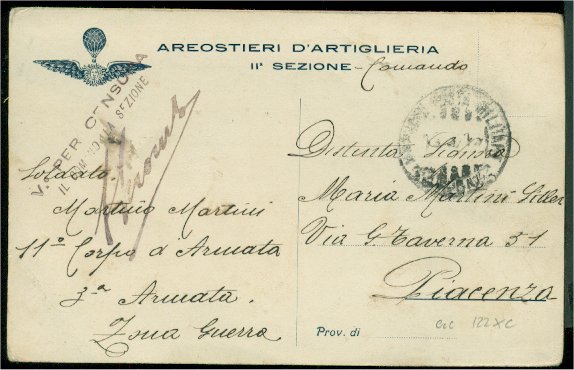 AREOSTIERI D'ARTIGLIERIA
IIª SEZIONE - Comando
V. PER CENSURA
IL COMANDO IIª SEZIONE
Soldato
Martino Martini
11º Corpo d'Armata
3ª Armata.
Zona Guerra
MILITARE
Distinta
Maria Martini
Via G. Taverna 31
Piacenza
Prov. di
122XC